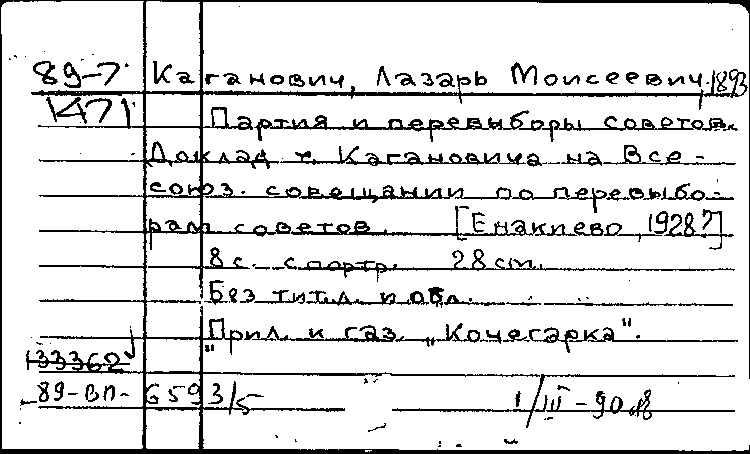 89-7 Каганович, Лазарь Моисеевич, 1893
1471 Партия и перевыборы советов.
Доклад т. Кагановича на Все-
союз. совещании по перевыбо-
рам советов. [Енакиево, 1928?]
8 с. с портр. 28 cm.
Без тит. л. и обл.
"Прил. к газ. „Кочегарка".
133362
89-ВП- 6593/5 1/III-90